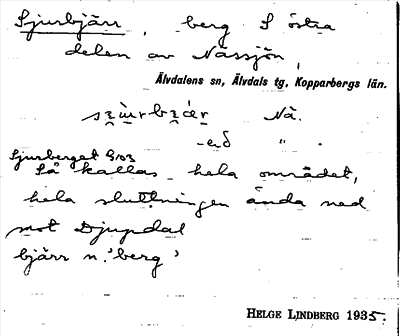 Sjurbjärr, berg S östra
delen av Nässjön,
Älvdalens sn, Älvdals tg, Kopparbergs län.
Nä.
"
Sjurberget G103
Så kallas hela området,
hela sluttningen ända ned
mot Djupdal
bjärr n. 'berg'
HELGE LINDBERG 1935.